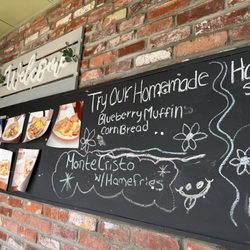 Welcome
Try Our Homemade
Blueberry Muffin
Corn Bread
Monte Cristo
w/ Homefries